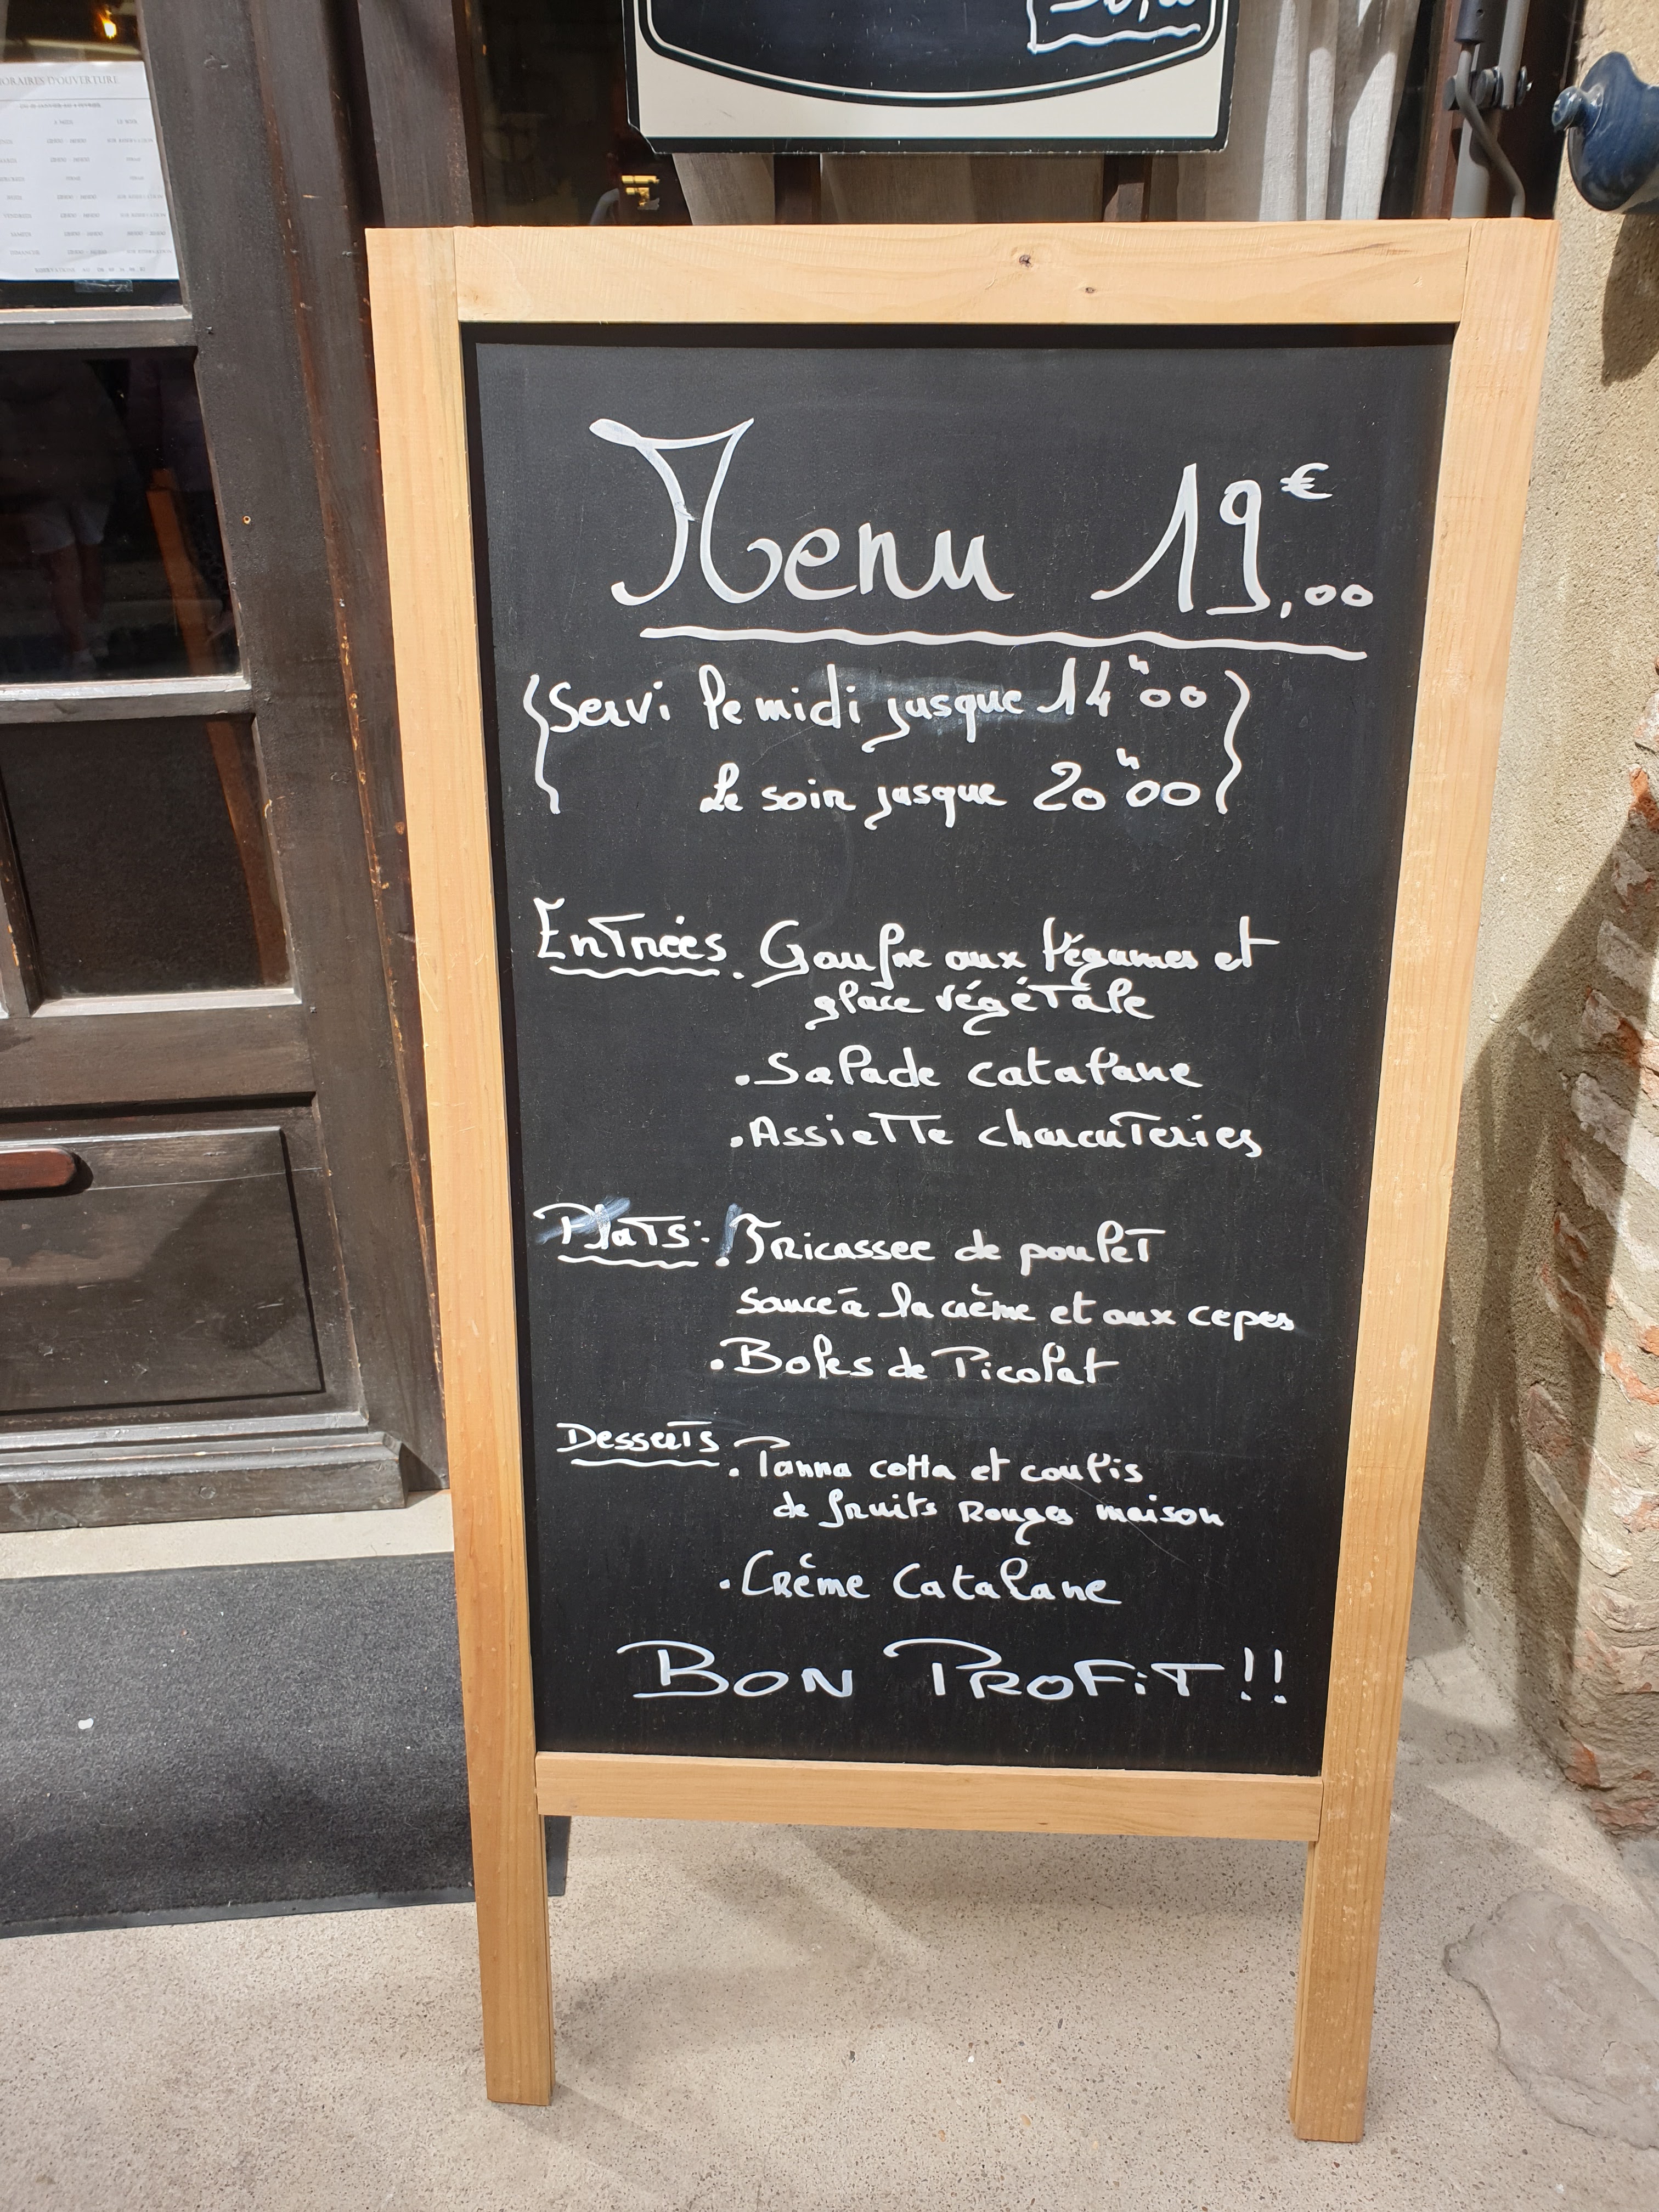 HORAIRES D'OUVERTURE
Menu 19€,00
{Servi le midi jusque 14h00
Le soir jusque 20h00}
Entrées . Gaufre aux légumes et
glace végétale
. Salade catalane
. Assiette charcuteries
Plats: . Fricassee de poulet
sauce à la crème et aux cepes
. Boles de Picolat
Desserts . Panna cotta et coulis
de fruits Rouges maison
. Crème Catalane
BON PROFiT!!